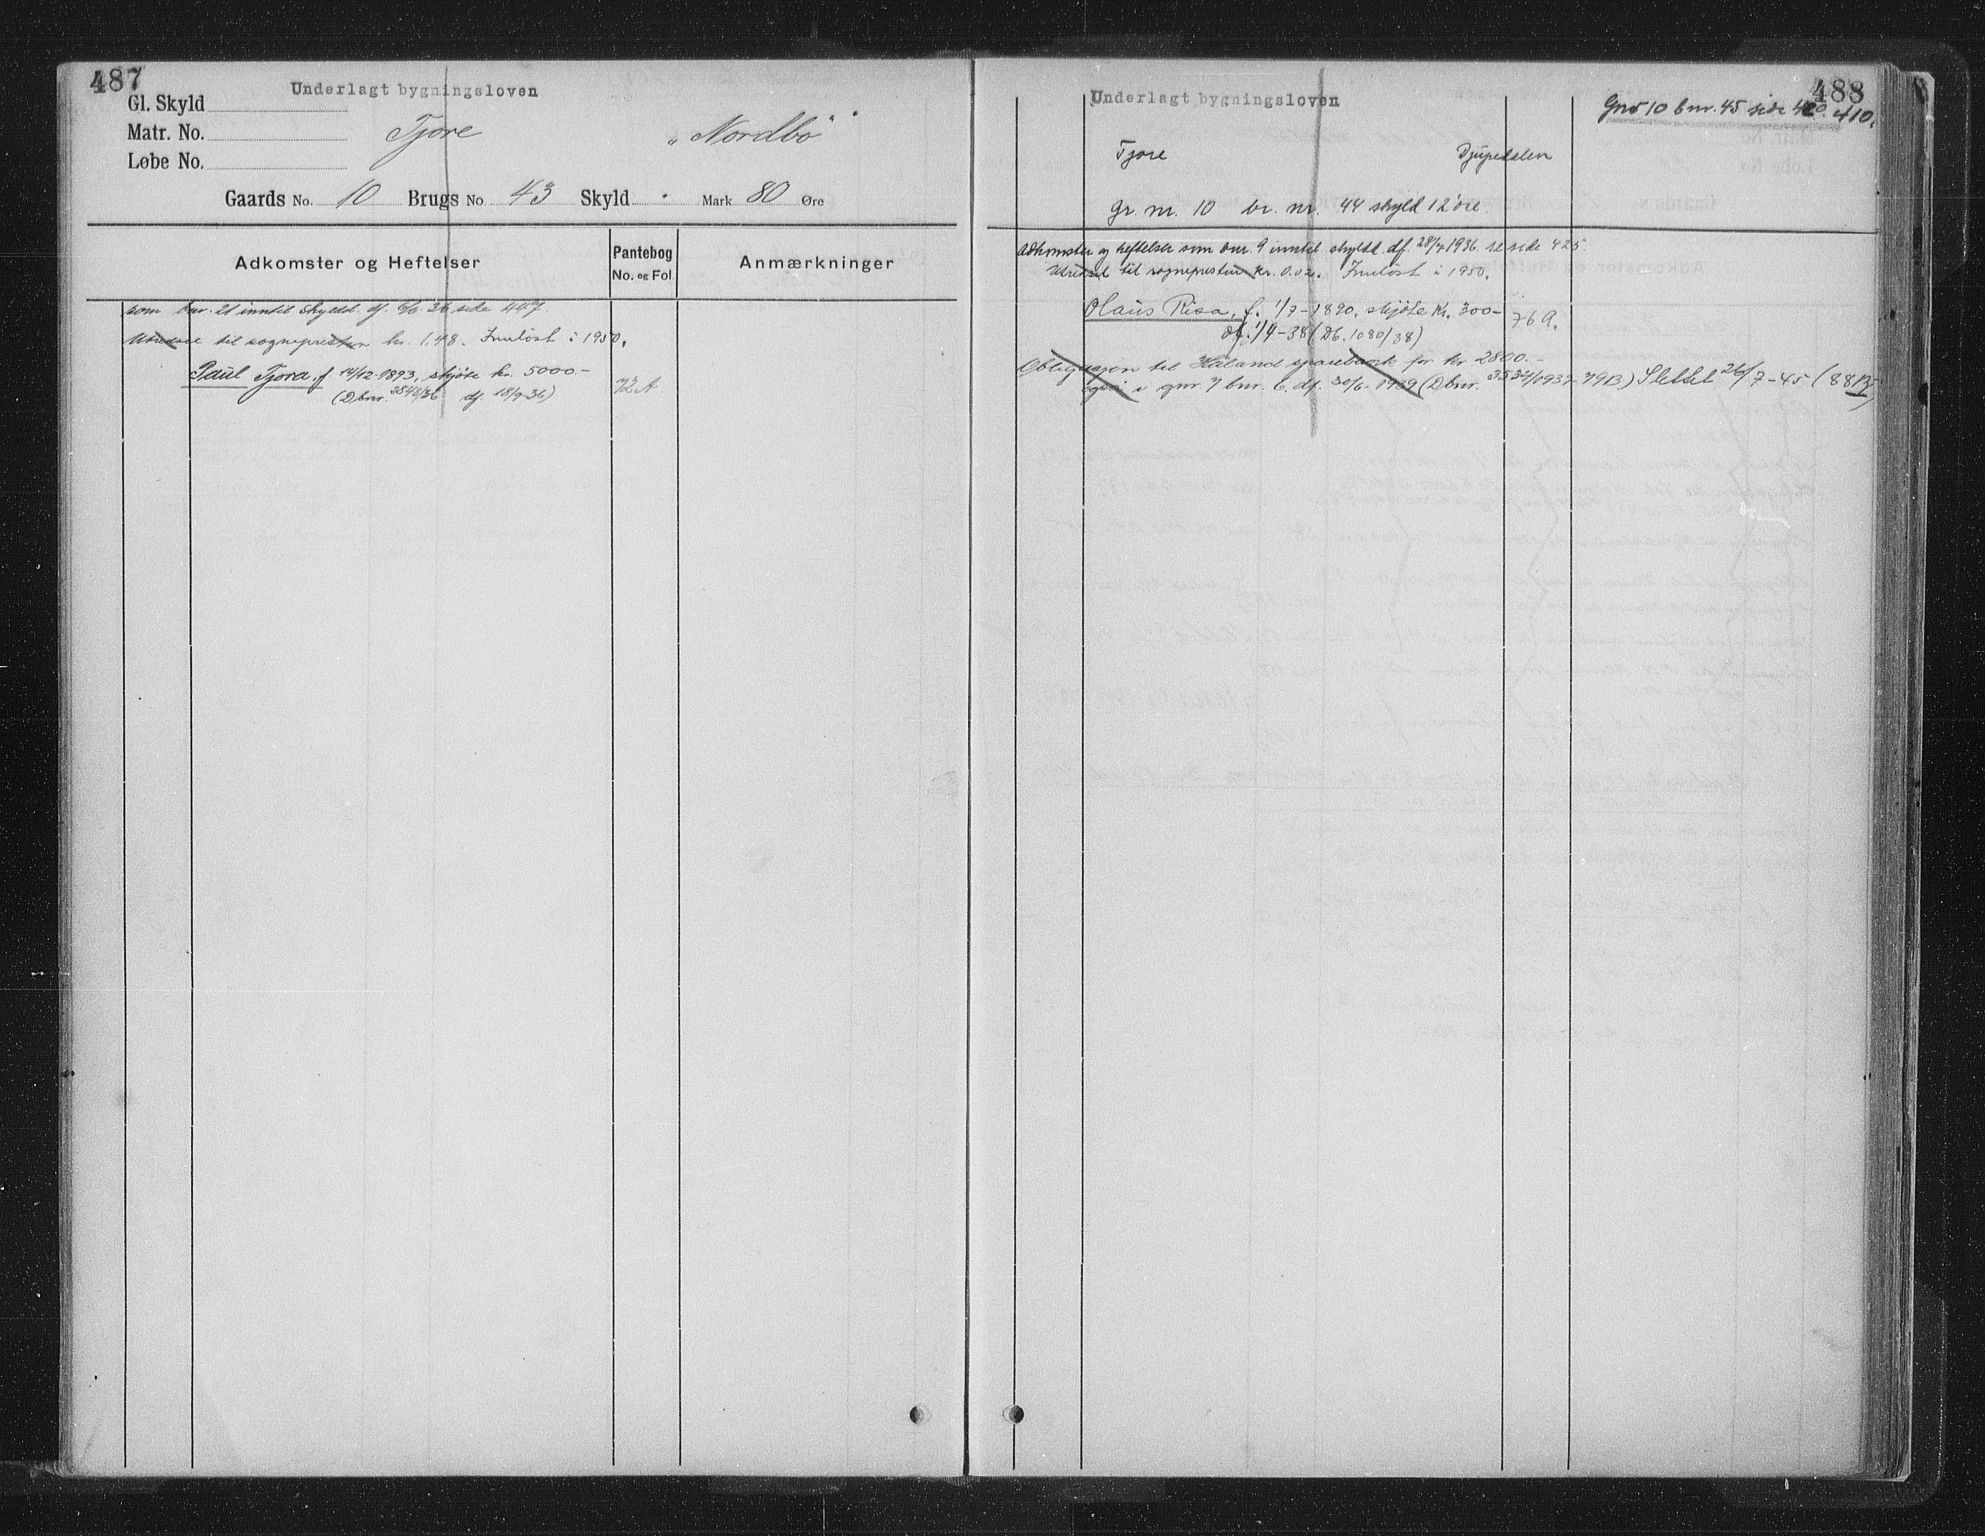 487
Underlagt bygningsloven
Gl. Skyld
Matr. No. Tjore "Nordbø"
Løbe No.
Gaards No. 10 Brugs No 43 Skyld . Mark 80 Øre
Adkomster og Heftelser
Pantebog
No. og Fol
Anmærkninger
som bnr. 21 inntil skyld. df. 6/6 36 side 447.
Utredsel til sogneprester kr. 1.48. Innløst i 1950.
Paul Tjora, f 14/12-1893, skjøte kr. 5000.- 72 A.
(Dbnr. 3848/36 df. 18/9-36)
488
Underlagt bygningsloven
Gnr 10 bnr. 45 side 410.
Tjore Djupedalen
gr. nr. 10 br. nr. 44 skyld 12 øre.
Adkomster og heftelser som bnr. 9 inntil skyldd. df. 28/4 1936 se side 425.
Utredsel til sogneprester kr. 0.02. Innløst i 1950.
Olaus Risa, f. 1/7-1890, skjøte kr. 300- 769.
df. 1/4-38 (Db. 1080/38)
Obligasjon til Håland sparebank for kr 2800.-
også i gnr 7 bnr. 6. df. 30/6-1939 (Dbnr. 3532/1939-79B) Slettet 26/7-45 (88B)